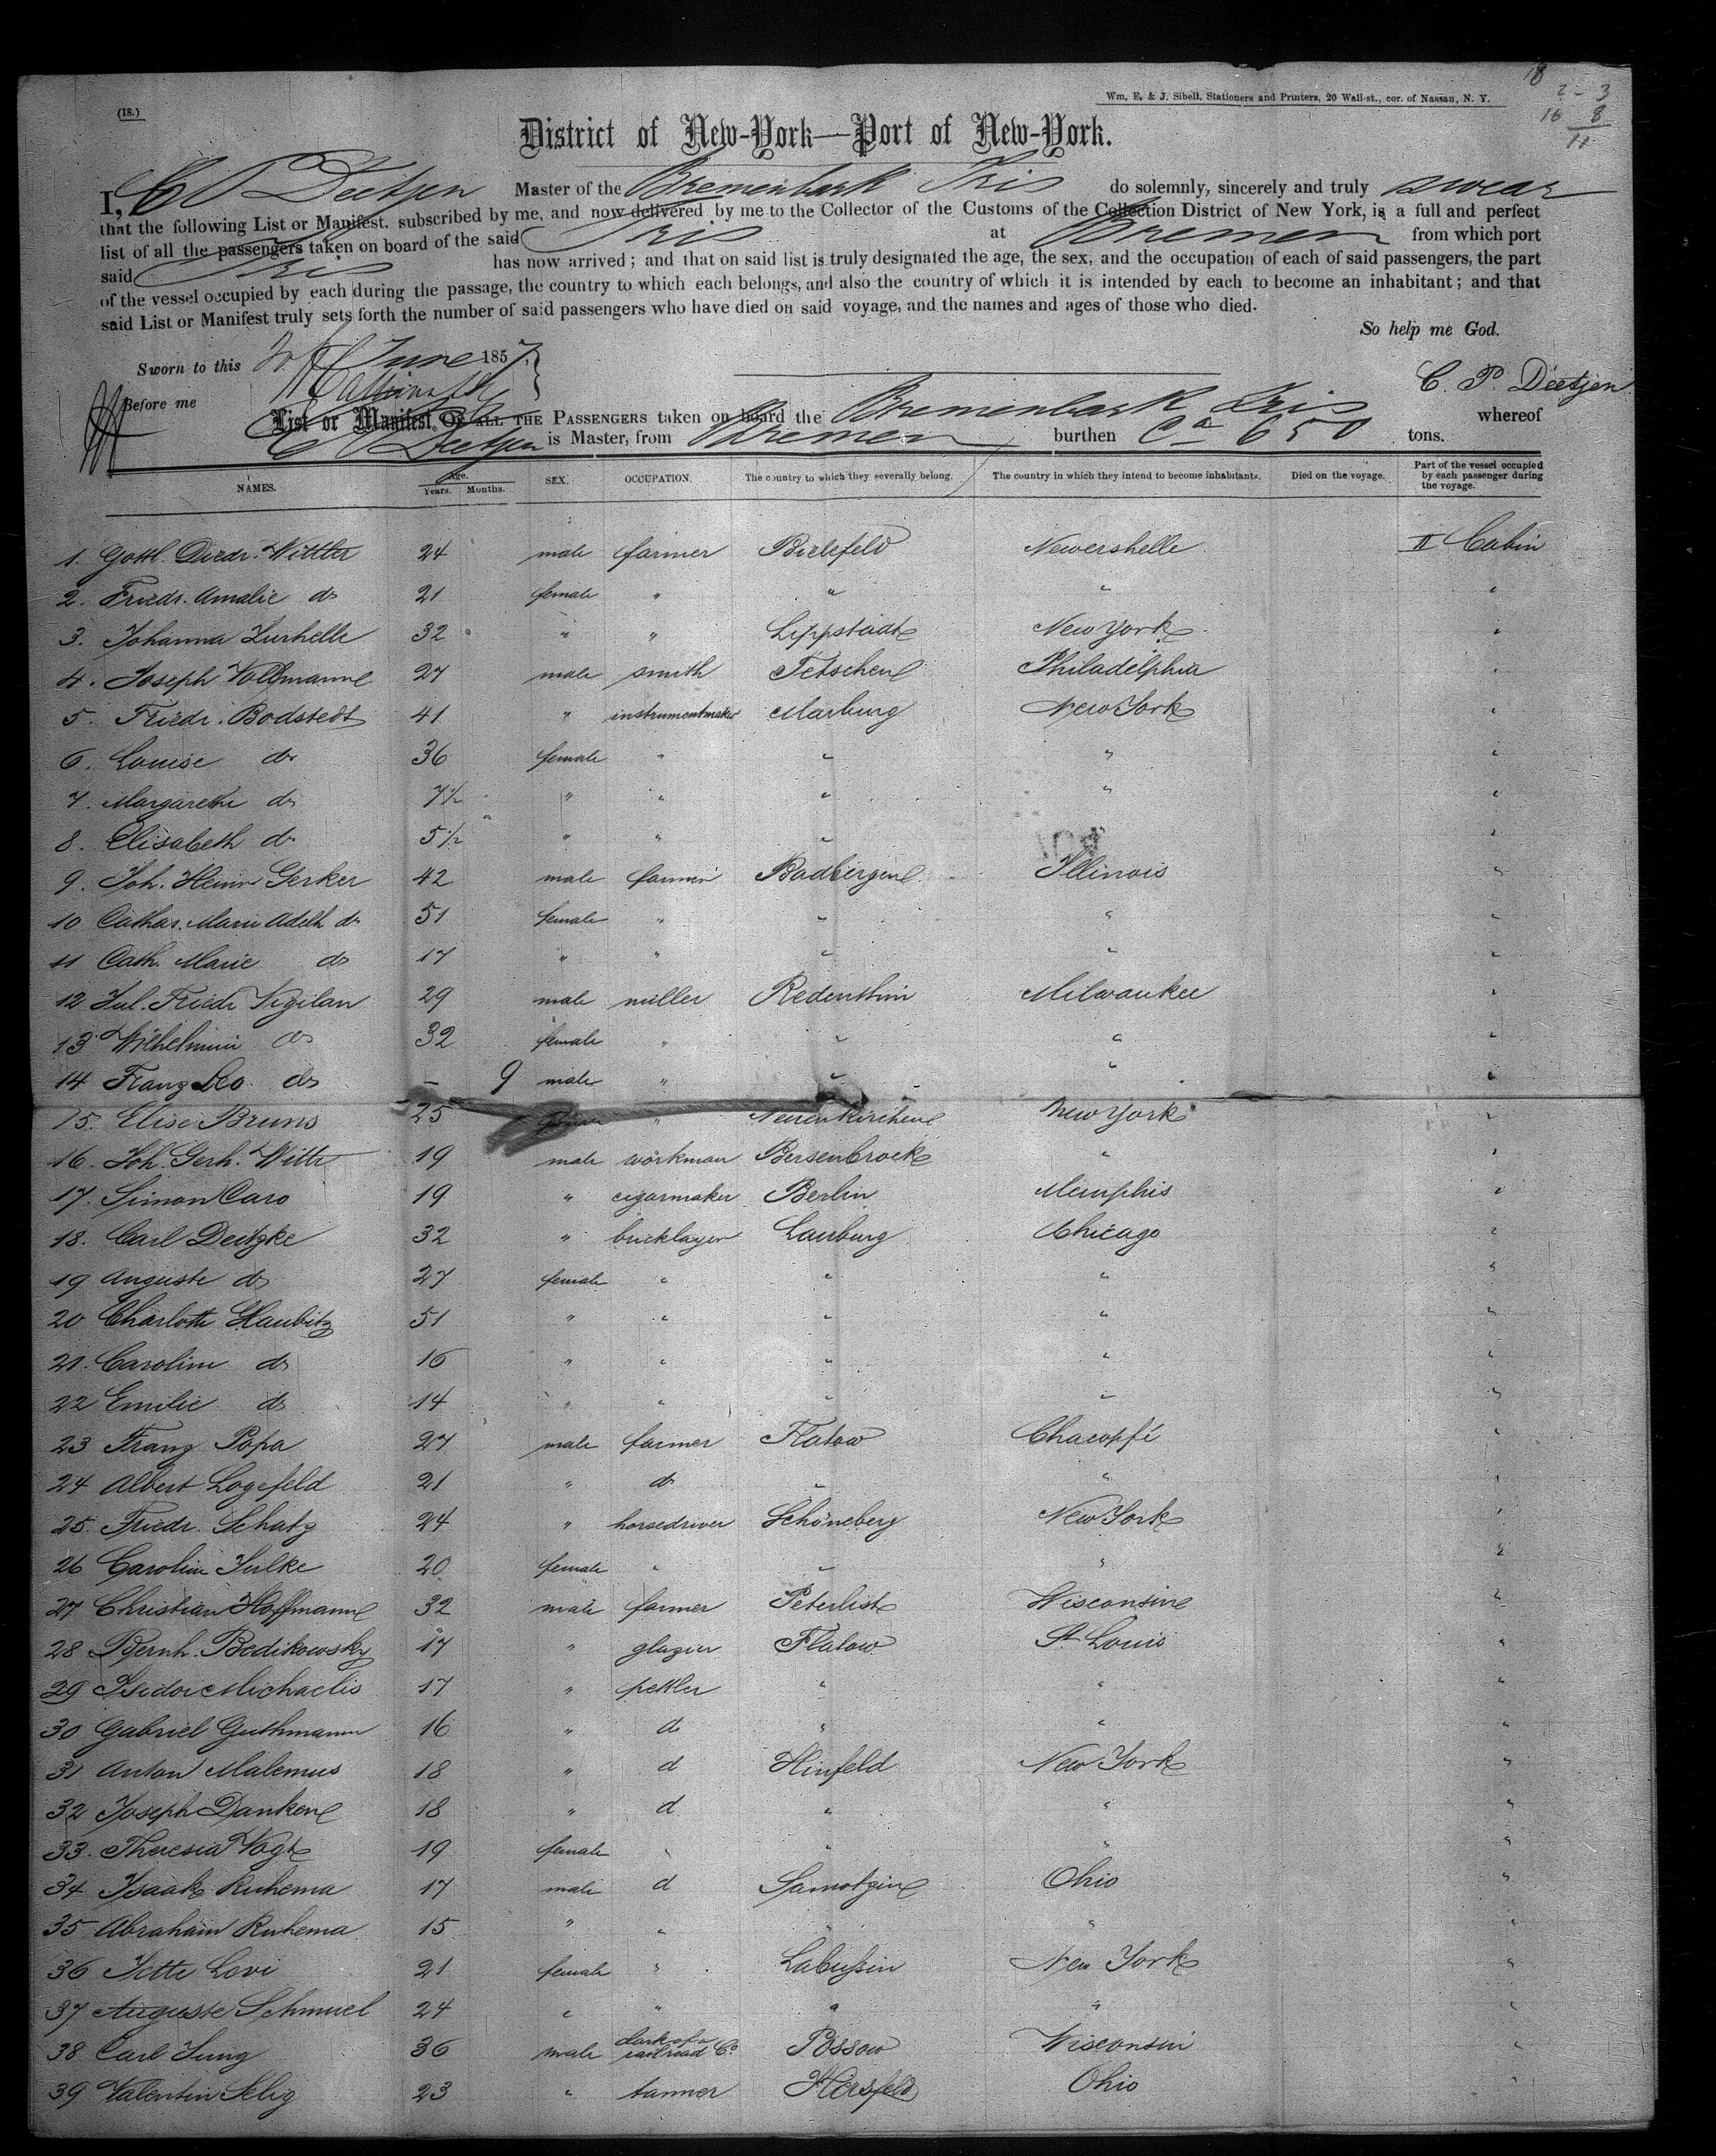 18
2 - 3
16 8
11
(18.)
Wm. E. & J. Sibell, Stationers and Printers, 20 Wall-st., cor. of Nassau, N. Y.
District of New-York—Port of New-York.
I, C P Deetjen Master of the Bremenbark Iris do solemnly, sincerely and truly swear
that the following List or Manifest, subscribed by me, and now delivered by me to the Collector of the Customs of the Collection District of New York, is a full and perfect
list of all the passengers taken on board of the said Iris at Bremen from which port
said Iris has now arrived; and that on said list is truly designated the age, the sex, and the occupation of each of said passengers, the part
of the vessel occupied by each during the passage, the country to which each belongs, and also the country of which it is intended by each to become an inhabitant; and that
said List or Manifest truly sets forth the number of said passengers who have died on said voyage, and the names and ages of those who died.
So help me God.
Sworn to this June 1857
C. P. Deetjen
Before me
List or Manifest OF ALL THE PASSENGERS taken on board the Bremenbark Iris whereof
C P Deetjen is Master, from Bremen burthen Ca 650 tons.
NAMES. Age. Years. Months. SEX. OCCUPATION. The country to which they severally belong. The country in which they intend to become inhabitants. Died on the voyage. Part of the vessel occupied by each passenger during the voyage.
1. Gottl. Diedr. Wittler 24 male farmer Bielefeld Newershelle II Cabin
2. Friedr. Amalie do 21 female " " " "
3. Johanna Zurhelle 32 " " Lippstadt New York "
4. Joseph Vollmann 27 male smith Tetschen Philadelphia "
5. Friedr. Bodstedt 41 " instrumentmaker Marburg New York "
6. Louise do 36 female " " " "
7. Margarethe do 7½ " " " " "
8. Elisabeth do 5½ " " " " "
9. Joh. Heinr Gerker 42 male farmer Badbergen Illinois "
10 Cathar. Marie Adelh do 51 female " " " "
11 Cath. Marie do 17 " " " " "
12 Jul. Friedr Vigilan 29 male miller Redenthin Milwaukee "
13 Wilhelmine do 32 female " " " "
14 Franz Leo do - 9 male " " " "
15. Elise Bruns 25 female " Neuenkirchen New York "
16. Joh. Gerh. Witte 19 male workman Bersenbrock " "
17. Simon Caro 19 " cigarmaker Berlin Memphis "
18. Carl Deitzke 32 " bricklayer Lauburg Chicago "
19 Auguste do 27 female " " " "
20 Charlotte Haubitz 51 " " " " "
21. Caroline do 16 " " " " "
22 Emilie do 14 " " " " "
23 Franz Papa 27 male farmer Flatow Chacopfé "
24 Albert Logefeld 21 " do " " "
25. Friedr. Schatz 24 " horsedriver Schöneberg New York "
26 Caroline Julke 20 female " " " "
27 Christian Hoffmann 32 male farmer Peterlist Wisconsine "
28 Bernh. Bedikowsky 17 " glazier Flatow St Louis "
29 Isidor Michaelis 17 " pettler " " "
30 Gabriel Guthmann 16 " do " " "
31 Anton Malemus 18 " d Hinfeld New York "
32 Joseph Danken 18 " d " " "
33. Theresia Vogt 19 female " " " "
34 Isaak Ruhema 17 male d Samotzin Ohio "
35 Abraham Ruhema 15 " " " " "
36 Jette Levi 21 female " Labussin New York "
37 Auguste Schmuel 24 " " " " "
38 Carl Jung 36 male clark of a railroad Co Possow Wisconsin "
39 Valentin Selig 23 " tanner Hersfeld Ohio "